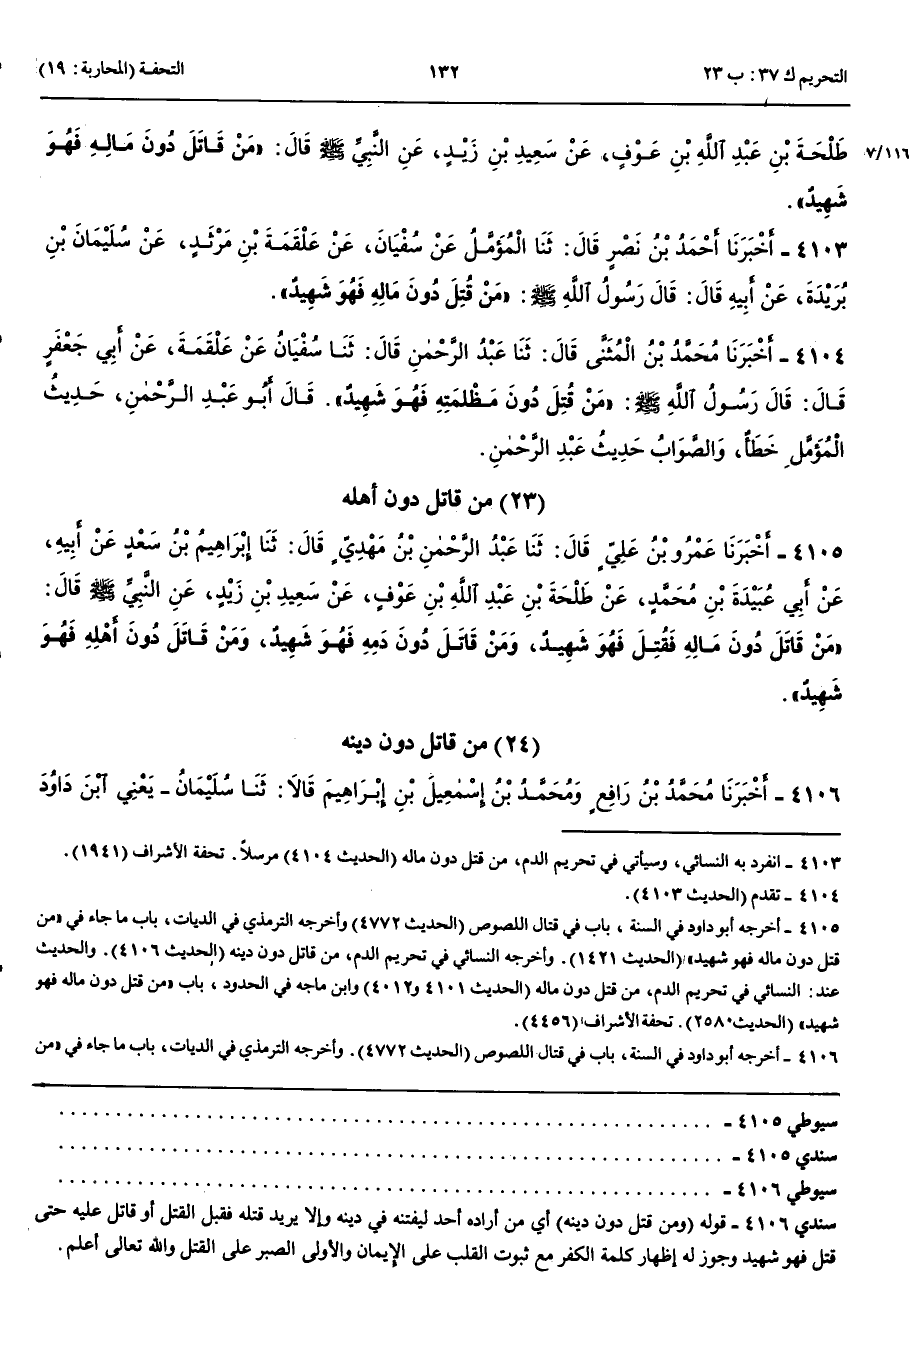 التحريم ك ٣٧: ب ٢٣ ١٣٢ التحفة (المحاربة: ١٩)
٧/١١٦ طَلْحَةَ بْنِ عَبْدِ ٱللَّهِ بْنِ عَوْفٍ، عَنْ سَعِيدِ بْنِ زَيْدٍ، عَنِ النَّبِيِّ ﷺ قَالَ: «مَنْ قَاتَلَ دُونَ مَالِهِ فَهُوَ
شَهِيدٌ».
٤١٠٣ ـ أَخْبَرَنَا أَحْمَدُ بْنُ نَصْرٍ قَالَ: ثَنَا الْمُؤَمَّلُ عَنْ سُفْيَانَ، عَنْ عَلْقَمَةَ بْنِ مَرْثَدٍ، عَنْ سُلَيْمَانَ بْنِ
بُرَيْدَةَ، عَنْ أَبِيهِ قَالَ: قَالَ رَسُولُ ٱللَّهِ ﷺ: «مَنْ قُتِلَ دُونَ مَالِهِ فَهُوَ شَهِيدٌ».
٤١٠٤ ـ أَخْبَرَنَا مُحَمَّدُ بْنُ الْمُثَنَّى قَالَ: ثَنَا عَبْدُ الرَّحْمٰنِ قَالَ: ثَنَا سُفْيَانُ عَنْ عَلْقَمَةَ، عَنْ أَبِي جَعْفَرٍ
قَالَ: قَالَ رَسُولُ ٱللَّهِ ﷺ: «مَنْ قُتِلَ دُونَ مَظْلَمَتِهِ فَهُوَ شَهِيدٌ». قَالَ أَبُو عَبْدِ الرَّحْمٰنِ، حَدِيثُ
الْمُؤَمَّلِ خَطَأٌ، وَالصَّوَابُ حَدِيثُ عَبْدِ الرَّحْمٰنِ.
(٢٣) من قاتل دون أهله
٤١٠٥ ـ أَخْبَرَنَا عَمْرُو بْنُ عَلِيٍّ قَالَ: ثَنَا عَبْدُ الرَّحْمٰنِ بْنُ مَهْدِيٍّ قَالَ: ثَنَا إِبْرَاهِيمُ بْنُ سَعْدٍ عَنْ أَبِيهِ،
عَنْ أَبِي عُبَيْدَةَ بْنِ مُحَمَّدٍ، عَنْ طَلْحَةَ بْنِ عَبْدِ ٱللَّهِ بْنِ عَوْفٍ، عَنْ سَعِيدِ بْنِ زَيْدٍ، عَنِ النَّبِيِّ ﷺ قَالَ:
«مَنْ قَاتَلَ دُونَ مَالِهِ فَقُتِلَ فَهُوَ شَهِيدٌ، وَمَنْ قَاتَلَ دُونَ دَمِهِ فَهُوَ شَهِيدٌ، وَمَنْ قَاتَلَ دُونَ أَهْلِهِ فَهُوَ
شَهِيدٌ».
(٢٤) من قاتل دون دينه
٤١٠٦ ـ أَخْبَرَنَا مُحَمَّدُ بْنُ رَافِعٍ وَمُحَمَّدُ بْنُ إِسْمٰعِيلَ بْنِ إِبْرَاهِيمَ قَالَا: ثَنَا سُلَيْمَانُ ـ يَعْنِي ٱبْنَ دَاوُدَ
٤١٠٣ ـ انفرد به النسائي، وسيأتي في تحريم الدم، من قتل دون ماله (الحديث ٤١٠٤) مرسلاً. تحفة الأشراف (١٩٤١).
٤١٠٤ ـ تقدم (الحديث ٤١٠٣).
٤١٠٥ ـ أخرجه أبو داود في السنة، باب في قتال اللصوص (الحديث ٤٧٧٢) وأخرجه الترمذي في الديات، باب ما جاء في «من
قتل دون ماله فهو شهيد» (الحديث ١٤٢١). وأخرجه النسائي في تحريم الدم، من قاتل دون دينه (الحديث ٤١٠٦). والحديث
عند: النسائي في تحريم الدم، من قتل دون ماله (الحديث ٤١٠١ و٤٠١٢) وابن ماجه في الحدود، باب «من قتل دون ماله فهو
شهيد» (الحديث ٢٥٨٠). تحفة الأشراف (٤٤٥٦).
٤١٠٦ ـ أخرجه أبو داود في السنة، باب في قتال اللصوص (الحديث ٤٧٧٢). وأخرجه الترمذي في الديات، باب ما جاء في «من
سيوطي ٤١٠٥ ـ . . . . . . . . . . . . . . . . . . . .
سندي ٤١٠٥ ـ . . . . . . . . . . . . . . . . . . . .
سيوطي ٤١٠٦ ـ . . . . . . . . . . . . . . . . . . . .
سندي ٤١٠٦ ـ قوله (ومن قتل دون دينه) أي من أراده أحد ليفتنه في دينه وإلا يريد قتله فقبل القتل أو قاتل عليه حتى
قتل فهو شهيد وجوز له إظهار كلمة الكفر مع ثبوت القلب على الإيمان والأولى الصبر على القتل والله تعالى أعلم.